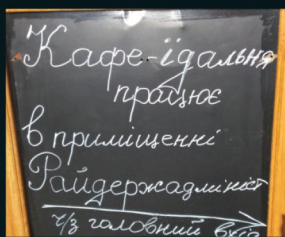 Кафе-їдальня
працює
в приміщенні
Райдержадмініст
ч/з головний вхід